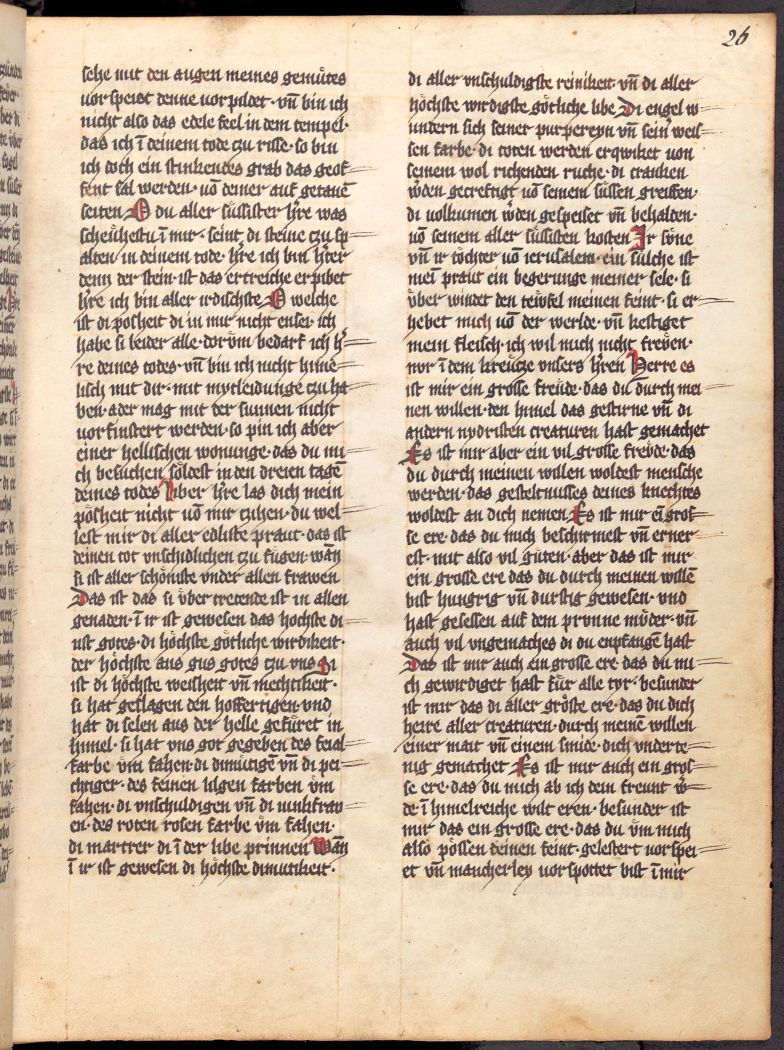 26
sehe mit den augen meines gemütes
vorspeist denne vorpildet · vn̄ bin ich
nicht also das edele feel in dem tempel ·
das ich ī deinem tode czu risse · so bin
ich doch ein stinkendes grab das geof=
fent sal werden · vō deiner auf getanē
seiten O du aller süssister h're was
scheühestu ī mir · seint di steine czu sp=
alten in deinem tode · h're ich bin h'ter
denn der stein · ist das ertreiche erpibet
h're ich bin aller irdischste O welche
ist di posheit di in mir nicht enser · ich
habe si leider alle · dorv̄m bedarf ich h'=
re deines todes · vn̄ bin ich nicht hime=
lisch mit dir · mit mytleidunge czu ha=
ben · ader mag mit der sunnen nicht
vorfinstert werden · so pin ich aber
einer hellischen wonunge · das du mi=
ch besuchen soldest in den dreien tagē
deines todes Liber h're las dich mein
pösheit nicht vō mir czihen · du wel=
lest mir di aller edliste praut · das ist
deinen tot vnschidlichen czu fugen · wān
si ist aller schöniste vnder allen frawen
Das ist das si v̈ber tretende ist in allen
genaden · ī ir ist gewesen das hochste di=
nst gotes · di höchste götliche wirdikeit ·
der höchste aus gus gotes czu vns Si
ist di höchste weisheit vn̄ mechtikeit ·
si hat geslagen den hoffertigen · vnd
hat di selen aus der helle gefüret in
himel · si hat vns got gegeben des feial=
farbe v̈m fahen · di dimütigē vn̄ di pei=
chtiger · des feinen lilgen farben v̈m
fahen · di vnschuldigen vn̄ di iunkfraw=
en · des roten rosen farbe v̈m fahen ·
di martrer di ī der libe prinnen Wān
ī ir ist gewesen di höchste dimutikeit ·
di aller vnschuldigste reinikeit · vn̄ di aller
höchste wirdigste götliche libe Di engel w=
undern sich seiner purpereyn vn̄ sein' weis=
sen farbe · di toten werden erqwiket von
seinem wol richenden ruche · di cranken
w'den gecreftigt vō seinem süssen greiffen ·
di volkumen w'den gespeiset vn̄ behalden ·
vō seinem aller süssisten kosten Ir söne
vn̄ ir töchter vō ierusalem · ein sülche ist
mei praut ein begerunge meiner sele · si
v̈ber windet den teüfel meinen feint · si er=
hebet mich vō der werlde · vn̄ kestiget
mein fleisch · ich wil mich nicht freẅen ·
nvr ī dem kreücze vnsers h'ren Herre es
ist mir ein grosse freüde · das du durch mei=
nen willen · den himel das gestirne vn̄ di
andern nydristen creaturen hast gemachet
Es ist mir aber ein vil grosse freẅde · das
du durch meinen willen woldest mensche
werden · das gesteltnusses deines knechtes
woldest an dich nemen Es ist mir eī gros=
se ere · das du mich beschirmest vn̄ erner=
est · mit also vil güten · aber das ist mir
ein grosse ere das du durch meinen willē
bist hungrig vn̄ durstig gewesen · vnd
hast gesessen auf dem prvnne mv̈der · vn̄
auch vil vngemaches di du enpfangē hast
Das ist mir auch ein grosse ere · das du mi=
ch gewirdiget hast für alle tyr · besunder
ist mir das di aller gröste ere · das du dich
herre aller creaturen · durch meinē willen
einer mait vn̄ einem smide · dich vnderte=
nig gemachet Es ist mir auch ein gros=
se ere · das du mich ab ich dein freunt w'=
de · ī himelreiche wilt eren · besunder ist
mir das ein grosse ere · das du v̈m mich
also pössen deinen feint · gelestert vorspei=
et vn̄ mancherley vorspottet bist ī mir